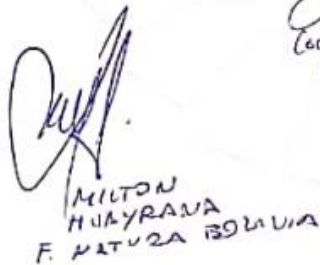 MILTON
HUAYRANA
F. NATURA BOLIVIA